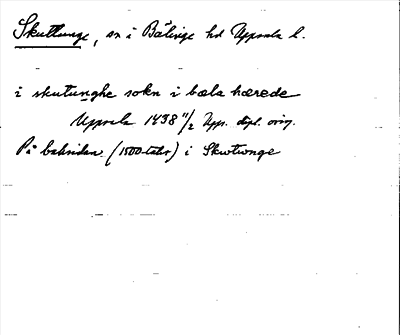 Skuttunge, sn i Bälinge hd Uppsala l.
i skutunghe sokn i bæla hærede
Uppsala 1438 11/2 Upps. dipl. orig.
På baksidan (1500-talet) i Skutwnge